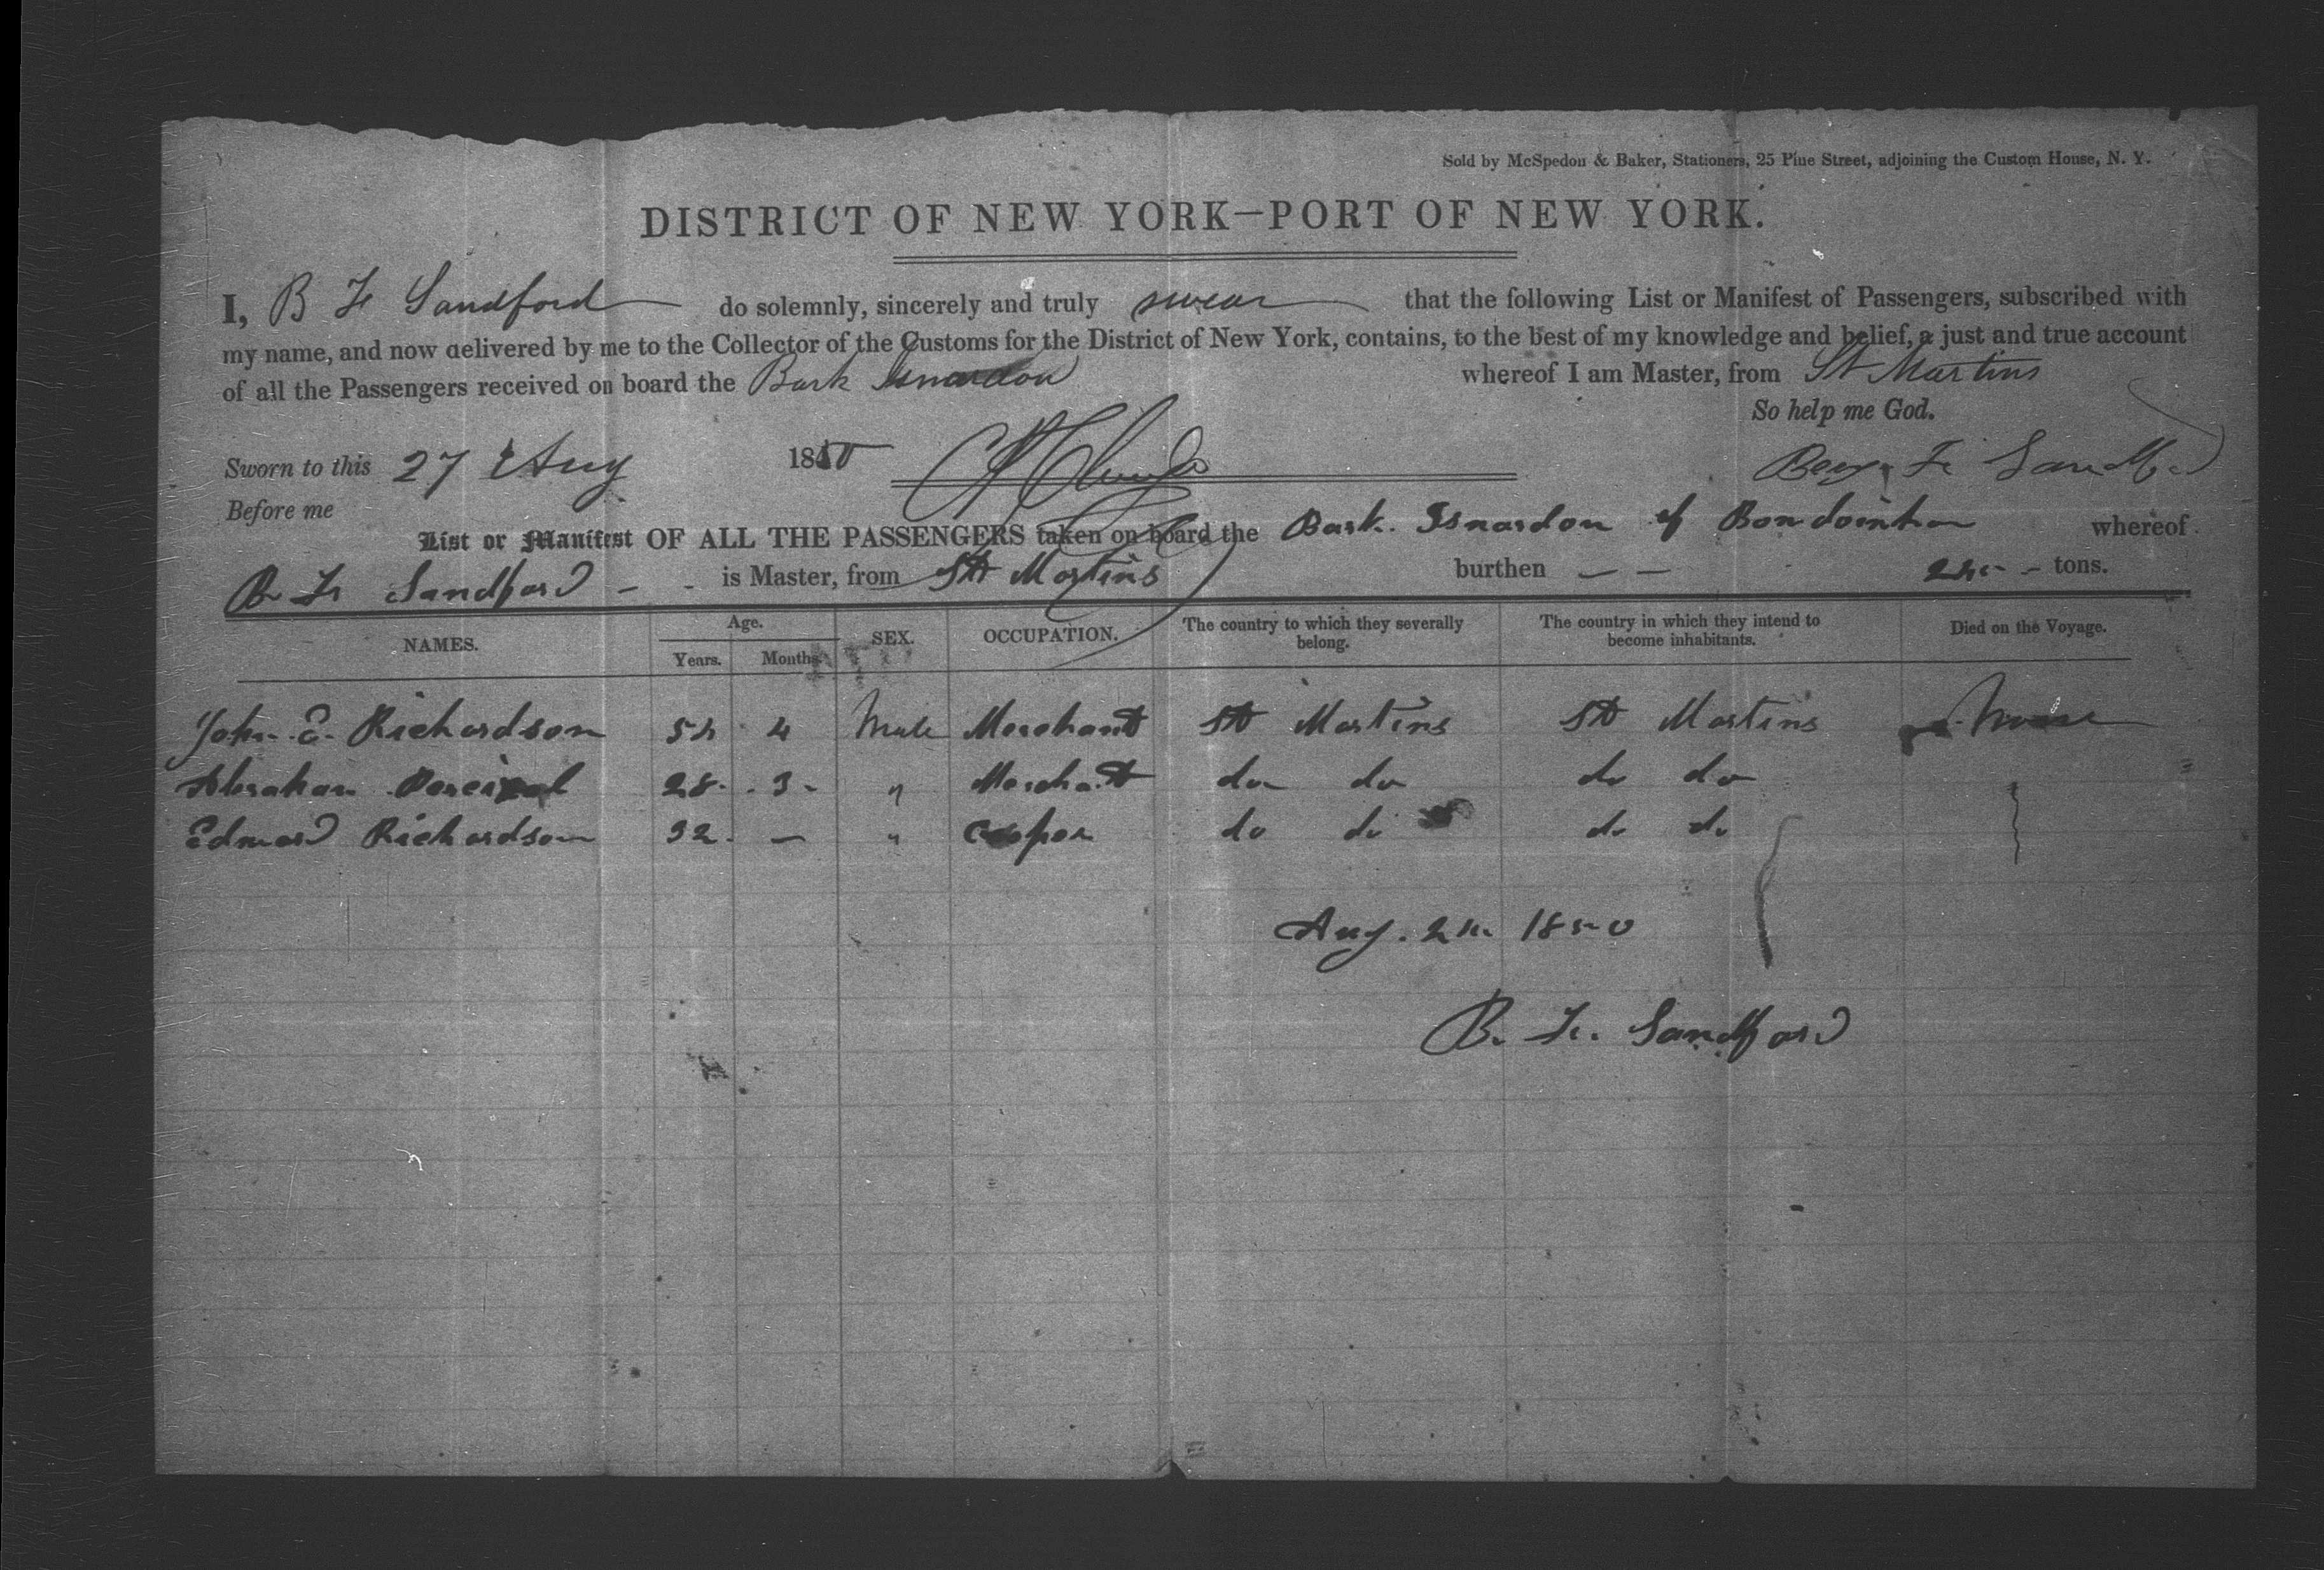 Sold by McSpedon & Baker, Stationers, 25 Pine Street, adjoining the Custom House, N. Y.
DISTRICT OF NEW YORK—PORT OF NEW YORK.
I, B F Sandford do solemnly, sincerely and truly swear that the following List or Manifest of Passengers, subscribed with
my name, and now delivered by me to the Collector of the Customs for the District of New York, contains, to the best of my knowledge and belief, a just and true account
of all the Passengers received on board the Bark Isnardon whereof I am Master, from St Martins
So help me God.
Sworn to this 27 Aug 1850 Benj. F. Sandford
Before me
List or Manifest OF ALL THE PASSENGERS taken on board the Bark Isnardon of whereof
B. F. Sandford - - is Master, from St Martins burthen — — tons.
NAMES. Age. Years. Months. SEX. OCCUPATION. The country to which they severally belong. The country in which they intend to become inhabitants. Died on the Voyage.
John E. Richardson 4 Male Merchant St Martins St Martins None
Abraham Percival 28 3 " Merchant do do do do
Edward Richardson 32 — " Cooper do do do do
Aug. 1850
B. F. Sandford